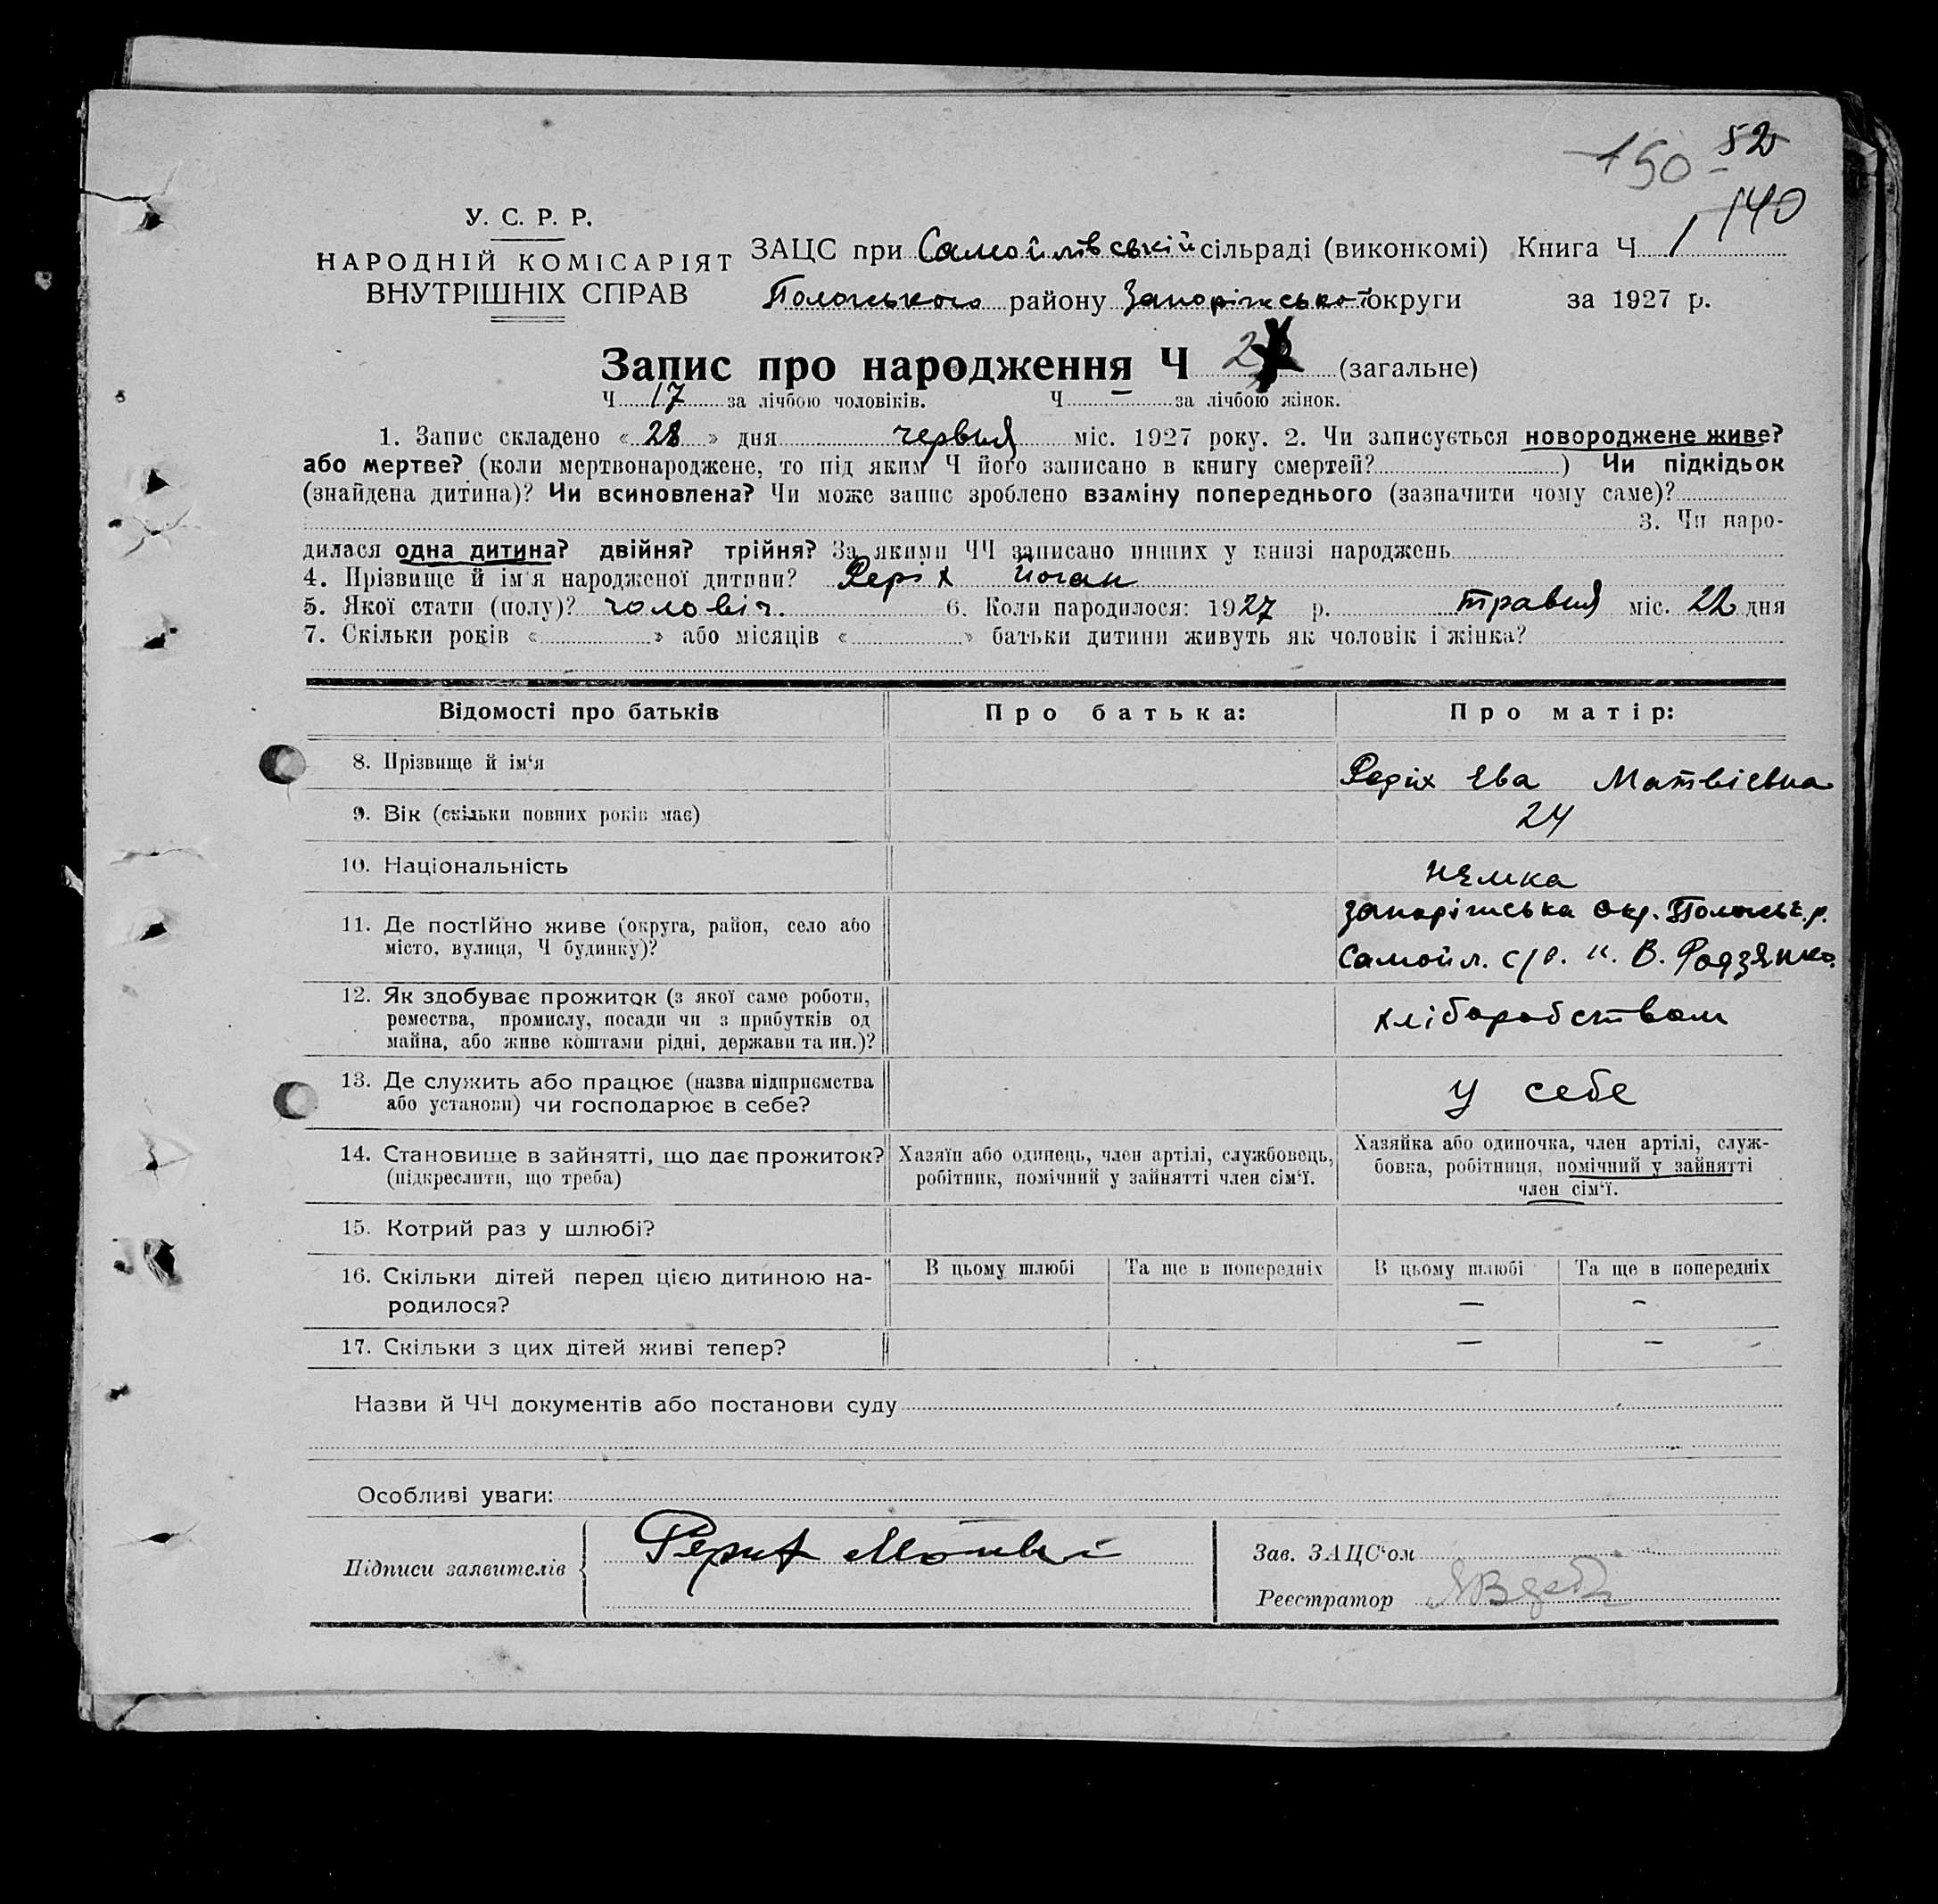 150 52
140
У. С. Р. Р.
НАРОДНІЙ КОМІСАРІЯТ
ВНУТРІШНІХ СПРАВ
ЗАЦС при Самойлівській сільраді (виконкомі) Книга Ч 1
Пологського району Запоріжської округи за 1927 р.
Запис про народження Ч (загальне)
Ч 17 за лічбою чоловіків. Ч — за лічбою жінок.
1. Запис складено « 28 » дня червня міс. 1927 року. 2. Чи записується новороджене живе?
або мертве? (коли мертвонароджене, то під яким Ч його записано в книгу смертей? ) Чи підкідьок
(знайдена дитина)? Чи всиновлена? Чи може запис зроблено взаміну попереднього (зазначити чому саме)?
3. Чи наро-
дилася одна дитина? двійня? трійня? За якими ЧЧ записано инших у книзі народжень
4. Прізвище й ім'я народженої дитини? Реріх Йоган
5. Якої стати (полу)? чоловіч. 6. Коли народилося: 1927 р. травня міс. 22 дня
7. Скільки років « » або місяців « » батьки дитини живуть як чоловік і жінка?
Відомості про батьків Про батька: Про матір:
8. Прізвище й ім'я Реріх Ева Матвієвна
9. Вік (скільки повних років має) 24
10. Національність немка
11. Де постійно живе (округа, район, село або
місто, вулиця, Ч будинку)?
Запоріжська окр. Пологськ. р.
Самойл. с/р. к. В. Родзянко.
12. Як здобуває прожиток (з якої саме роботи,
ремества, промислу, посади чи з прибутків од
майна, або живе коштами рідні, держави та ин.)?
хліборобством
13. Де служить або працює (назва підприємства
або установи) чи господарює в себе?
у себе
14. Становище в зайнятті, що дає прожиток?
(підкреслити, що треба)
Хазяїн або одинець, член артілі, службовець,
робітник, помічний у зайнятті член сім'ї.
Хазяйка або одиночка, член артілі, служ-
бовка, робітниця, помічний у зайнятті
член сім'ї.
15. Котрий раз у шлюбі?
16. Скільки дітей перед цією дитиною на-
родилося?
В цьому шлюбі Та ще в попередніх В цьому шлюбі Та ще в попередніх
— —
17. Скільки з цих дітей живі тепер? — —
Назви й ЧЧ документів або постанови суду
Особливі уваги:
Підписи заявителів
Зав. ЗАЦС'ом
Реєстратор